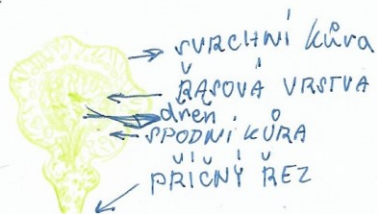 SVRCHNÍ KŮRA
ŘASOVÁ VRSTVA
dřeň
SPODNÍ KŮRA
PŘÍČNÝ ŘEZ